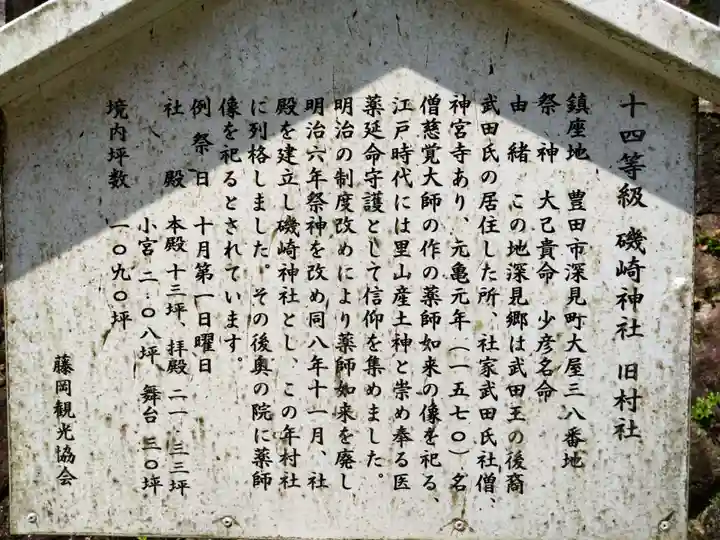 十四等級 磯崎神社 旧村社
鎮座地 豊田市深見町大屋三八番地
祭神 大己貴命 少彦名命
由緒 この地深見郷は武田王の後裔
武田氏の居住した所、社家武田氏社僧、
神宮寺あり、元亀元年（一五七〇）名
僧慈覚大師の作の薬師如来の像を祀る、
江戸時代には里山産土神と崇め奉る医
薬延命守護として信仰を集めました。
明治の制度改めにより薬師如来を廃し
明治六年祭神を改め同八年十一月、社
殿を建立し磯崎神社とし、この年村社
に列格しました。その後奥の院に薬師
像を祀るとされています。
例祭日 十月第一日曜日
社殿 本殿十三坪、拝殿二一.三三坪
小宮二.〇八坪、舞台三〇坪
境内坪数 一〇九〇坪
藤岡観光協会